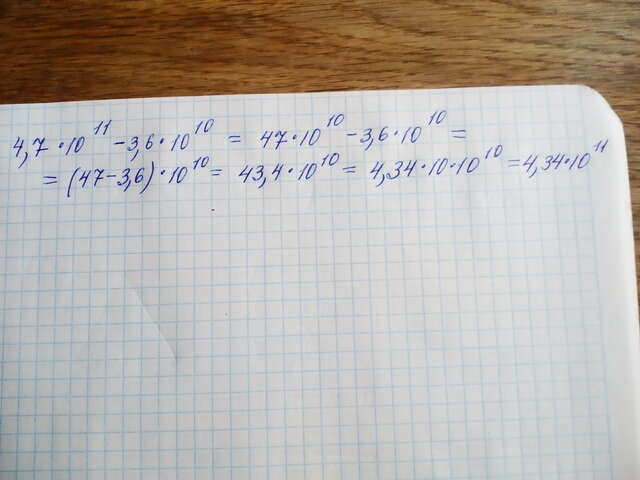 4,7·10¹¹ - 3,6·10¹⁰ = 47·10¹⁰ - 3,6·10¹⁰ =
= (47 - 3,6)·10¹⁰ = 43,4·10¹⁰ = 4,34·10·10¹⁰ = 4,34·10¹¹